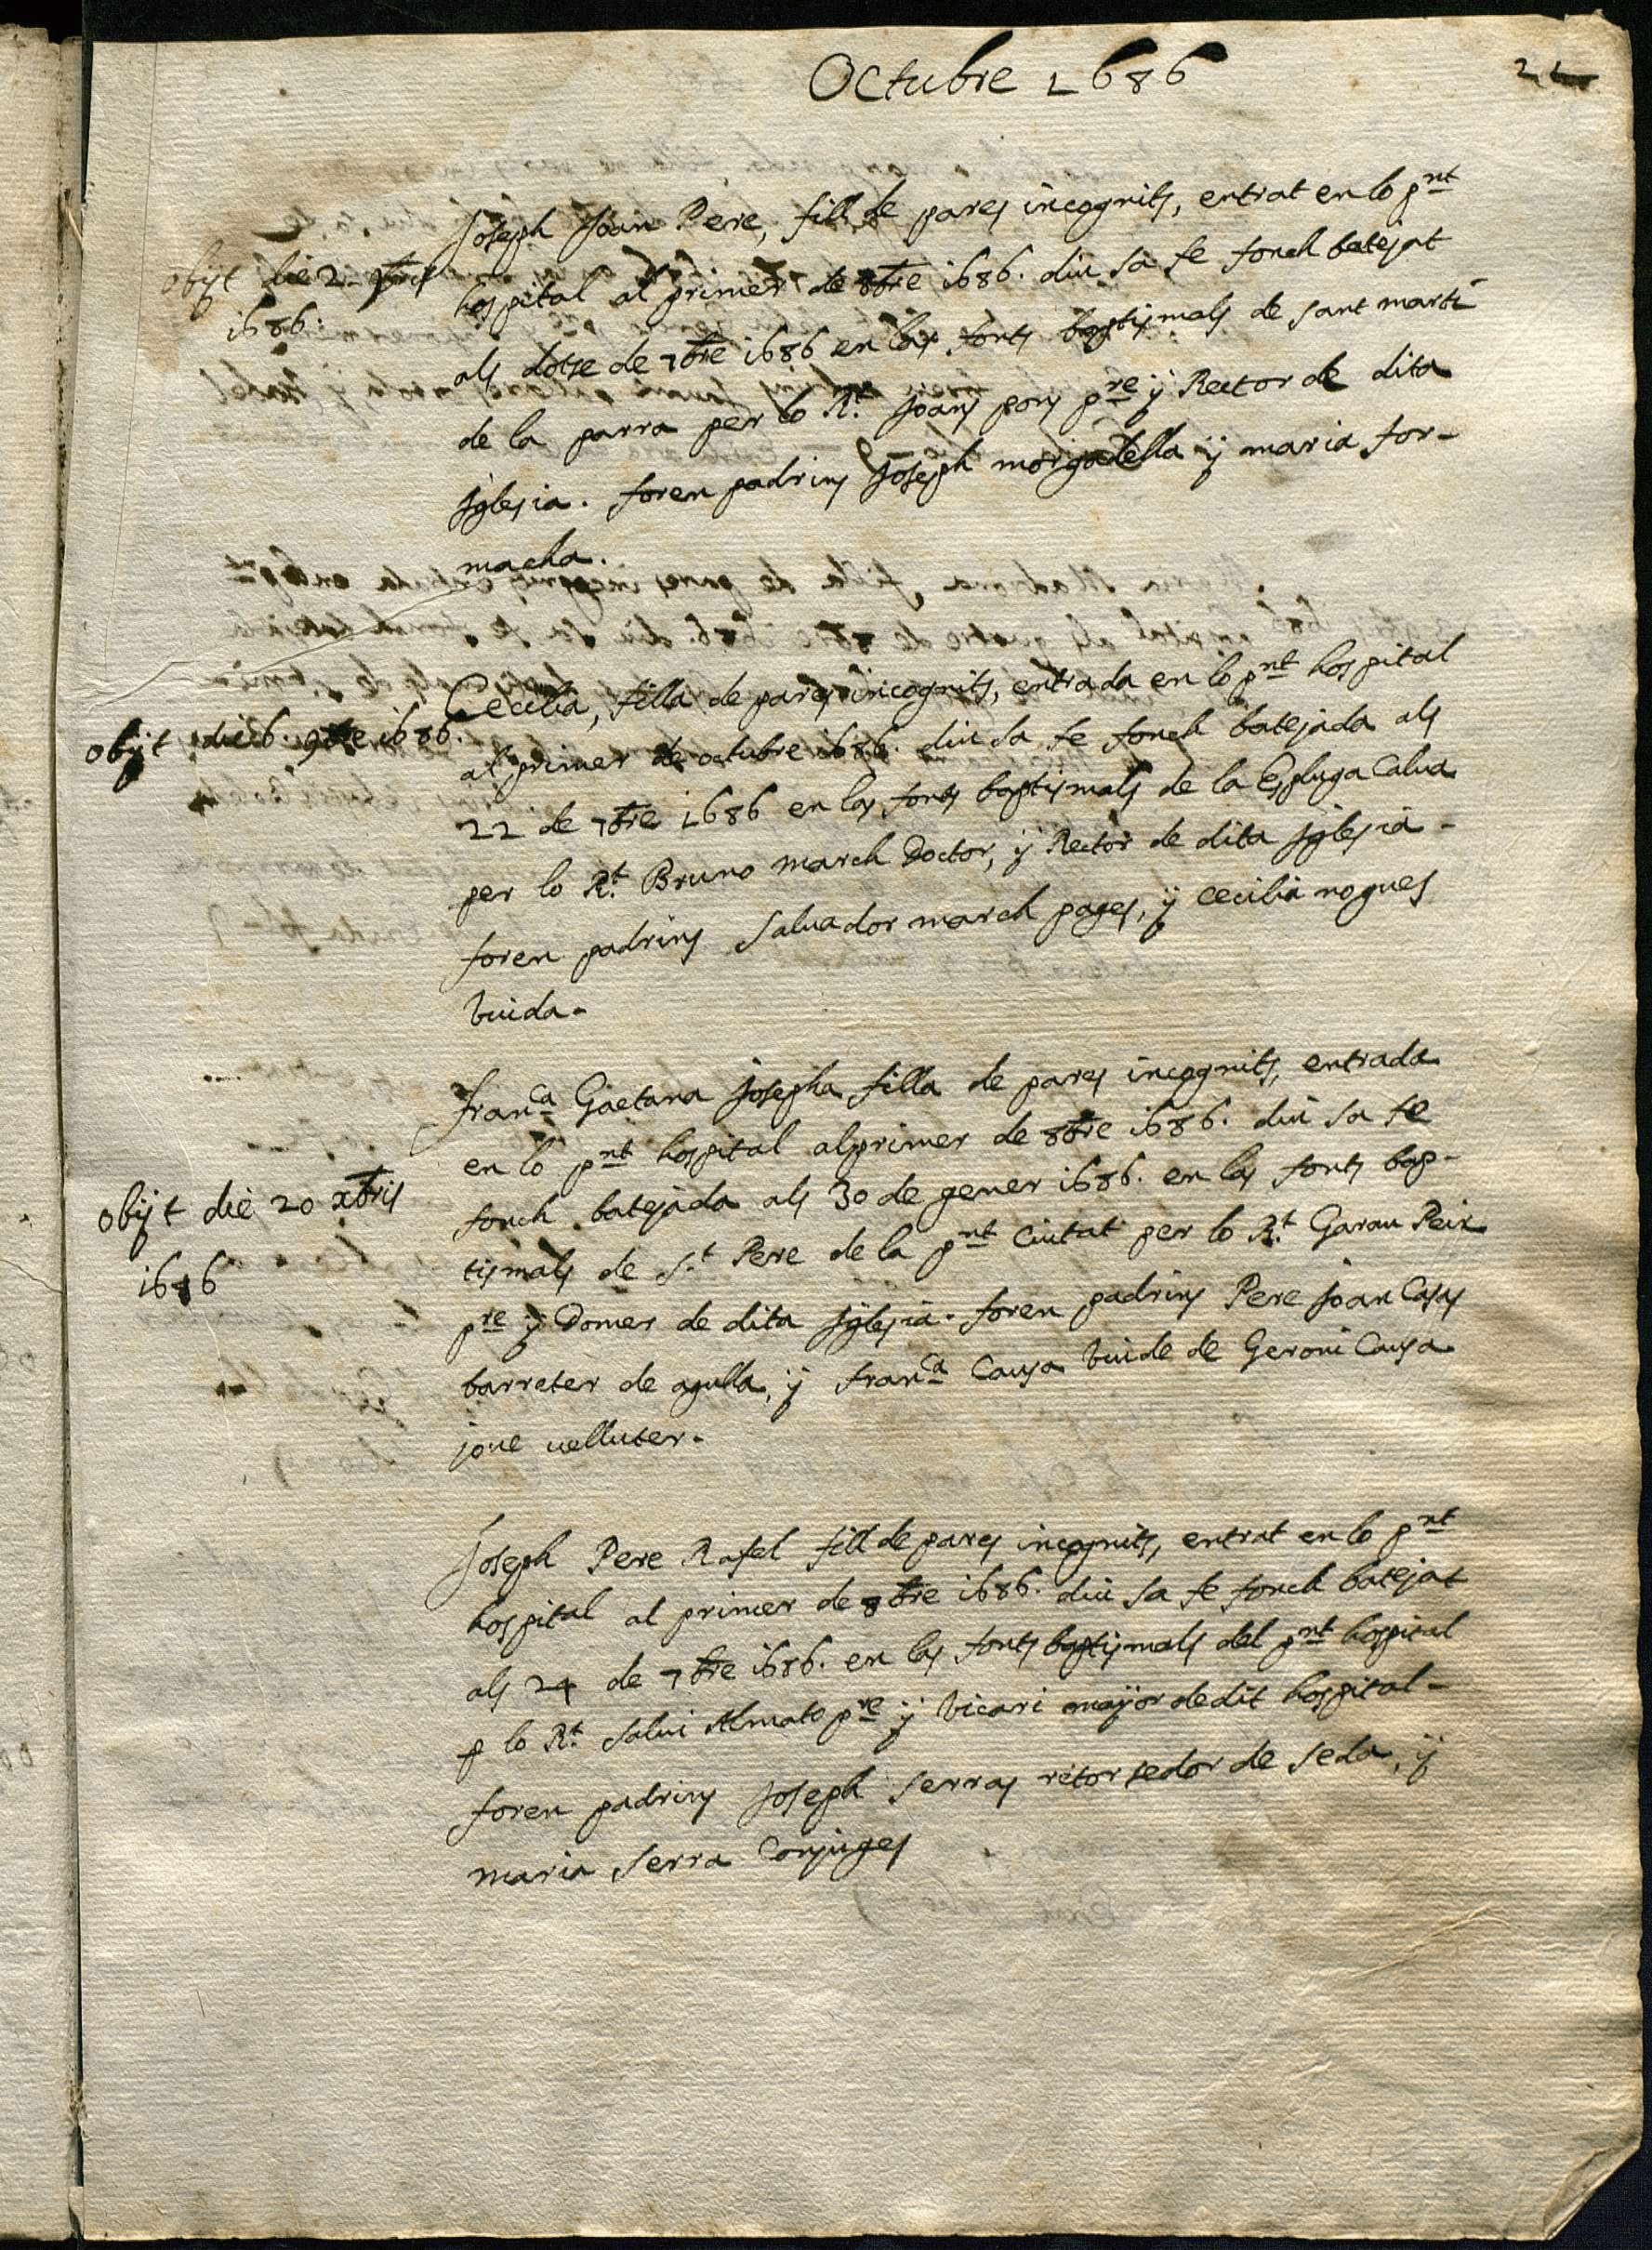 Octubre 1686
Joseph Joan Pere, fill de pares incognits, entrat en lo pnt
hospital al primer de 8bre 1686. diu sa fe fonch batejat
als dotse de 7bre 1686 en las fonts baptismals de sant marti
de la parra per lo Rt. Joan pons pre y Rector de dita
Iglesia. foren padrins Joseph morgadella y maria for-
macha.
obijt die 2
1686.
Cecilia, filla de pares incognits, entrada en lo pnt hospital
al primer de octubre 1686. diu sa fe fonch batejada als
22 de 7bre 1686 en las fonts baptismals de la Espluga Calva
per lo Rt. Bruno march Doctor, y Rector de dita Iglesia-
foren padrins Salvador march pages, y cecilia nogues
viuda-
obijt die 6. 9bre 1686.
Franca Gaetana Josepha filla de pares incognits, entrada
en lo pnt hospital al primer de 8bre 1686. diu sa fe
fonch batejada als 30 de gener 1686. en las fonts bap-
tismals de St. Pere de la pnt Ciutat per lo Rt. Garau Peix
pre y Domer de dita Iglesia. foren padrins Pere Joan Casas
barreter de agulla, y franca Causa viude de Geroni Causa
jove velluter.
obijt die 20 xbris
1686
Joseph Pere Rafel fill de pares incognits, entrat en lo pnt
hospital al primer de 8bre 1686. diu sa fe fonch batejat
als 24 de 7bre 1686. en las fonts baptismals del pnt hospital
p lo Rt. Salvi Almato pre y vicari major de dit hospital-
foren padrins Joseph Serras retorsedor de seda, y
maria Serra Conjuges